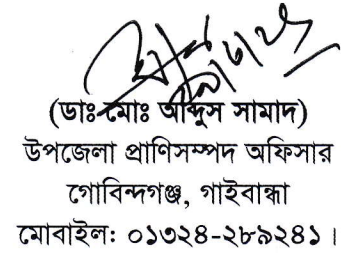 (ডাঃ মোঃ আব্দুস সামাদ)
উপজেলা প্রাণিসম্পদ অফিসার
গোবিন্দগঞ্জ, গাইবান্ধা
মোবাইল: ০১৩২৪-২৮৯২৪১।